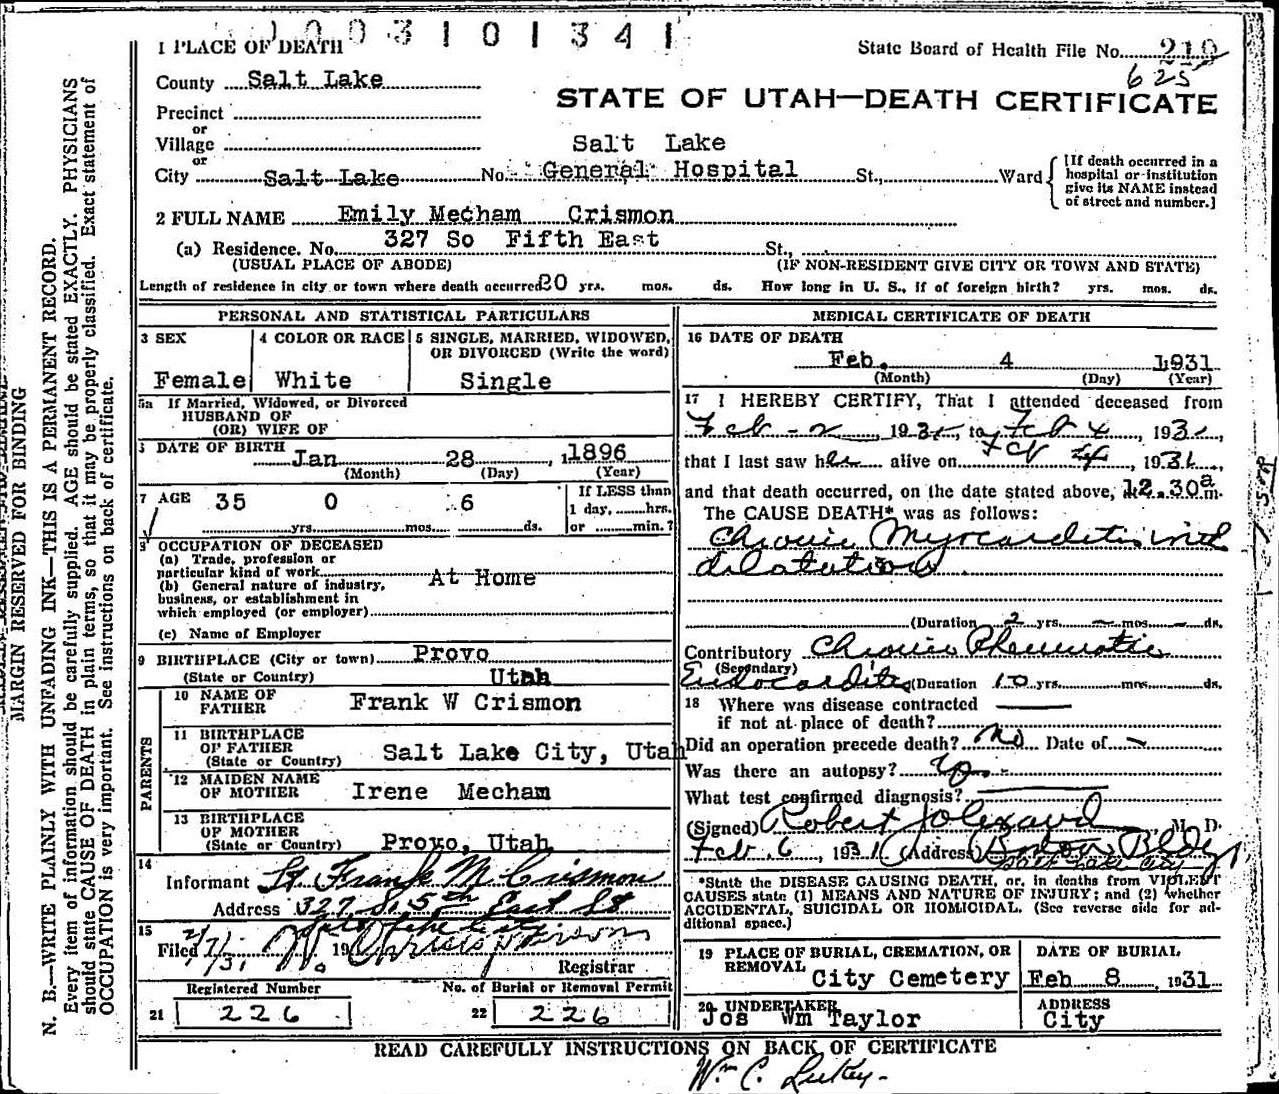 003101341
1 PLACE OF DEATH
State Board of Health File No. 210
625
County Salt Lake
STATE OF UTAH—DEATH CERTIFICATE
Precinct
or
Village
Salt Lake
or
City Salt Lake No. General Hospital St., Ward
[If death occurred in a
hospital or institution
give its NAME instead
of street and number.]
2 FULL NAME Emily Mecham Crismon
(a) Residence. No. 327 So Fifth East St.,
(USUAL PLACE OF ABODE) (IF NON-RESIDENT GIVE CITY OR TOWN AND STATE)
Length of residence in city or town where death occurred 20 yrs. mos. ds. How long in U. S., if of foreign birth? yrs. mos. ds.
PERSONAL AND STATISTICAL PARTICULARS
3 SEX
Female
4 COLOR OR RACE
White
5 SINGLE, MARRIED, WIDOWED,
OR DIVORCED (Write the word)
Single
5a If Married, Widowed, or Divorced
HUSBAND OF
(OR) WIFE OF
DATE OF BIRTH Jan 28, 1896
(Month) (Day) (Year)
7 AGE 35 0 6
yrs. mos. ds.
If LESS than
1 day, hrs.
or min.?
OCCUPATION OF DECEASED
(a) Trade, profession or
particular kind of work At Home
(b) General nature of industry,
business, or establishment in
which employed (or employer)
(c) Name of Employer
9 BIRTHPLACE (City or town) Provo
(State or Country) Utah
PARENTS
10 NAME OF
FATHER Frank W Crismon
11 BIRTHPLACE
OF FATHER
(State or Country) Salt Lake City, Utah
12 MAIDEN NAME
OF MOTHER Irene Mecham
13 BIRTHPLACE
OF MOTHER
(State or Country) Provo, Utah
14
Informant Lt. Frank M Crismon
Address 327 So. 5th East St
15
Filed 2/7/31 19
Registrar
Registered Number
21 226
No. of Burial or Removal Permit
22 226
MEDICAL CERTIFICATE OF DEATH
16 DATE OF DEATH
Feb. 4 1931
(Month) (Day) (Year)
17 I HEREBY CERTIFY, That I attended deceased from
Feb - 2, 1931, to Feb 4, 1931,
that I last saw her alive on Feb 4, 1931,
and that death occurred, on the date stated above, 12.30 a m.
The CAUSE DEATH* was as follows:
Chronic Myocarditis with
dilatation
(Duration 2 yrs. — mos. — ds.
Contributory Chronic Rheumatic
(Secondary)
Endocarditis (Duration 10 yrs. mos. ds.
18 Where was disease contracted
if not at place of death?
Did an operation precede death? No Date of —
Was there an autopsy?
What test confirmed diagnosis?
(Signed) Robert M. D.
Feb. 6, 1931 (Address) Boston Bldg
*State the DISEASE CAUSING DEATH, or, in deaths from VIOLENT
CAUSES state (1) MEANS AND NATURE OF INJURY; and (2) whether
ACCIDENTAL, SUICIDAL OR HOMICIDAL. (See reverse side for ad-
ditional space.)
19 PLACE OF BURIAL, CREMATION, OR
REMOVAL City Cemetery
DATE OF BURIAL
Feb 8, 1931
20 UNDERTAKER
Jos Wm Taylor
ADDRESS
City
READ CAREFULLY INSTRUCTIONS ON BACK OF CERTIFICATE
Wm C.
MARGIN RESERVED FOR BINDING
N. B.—WRITE PLAINLY WITH UNFADING INK—THIS IS A PERMANENT RECORD.
Every item of information should be carefully supplied. AGE should be stated EXACTLY. PHYSICIANS
should state CAUSE OF DEATH in plain terms, so that it may be properly classified. Exact statement of
OCCUPATION is very important. See instructions on back of certificate.